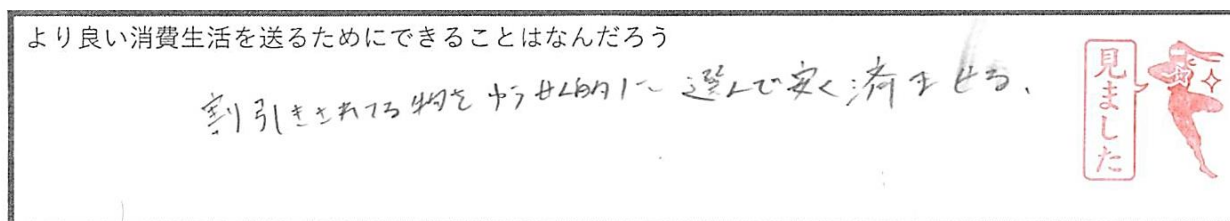 より良い消費生活を送るためにできることはなんだろう
割引きされてる物をゆうせん的に選んで安く済ませる、
見ました